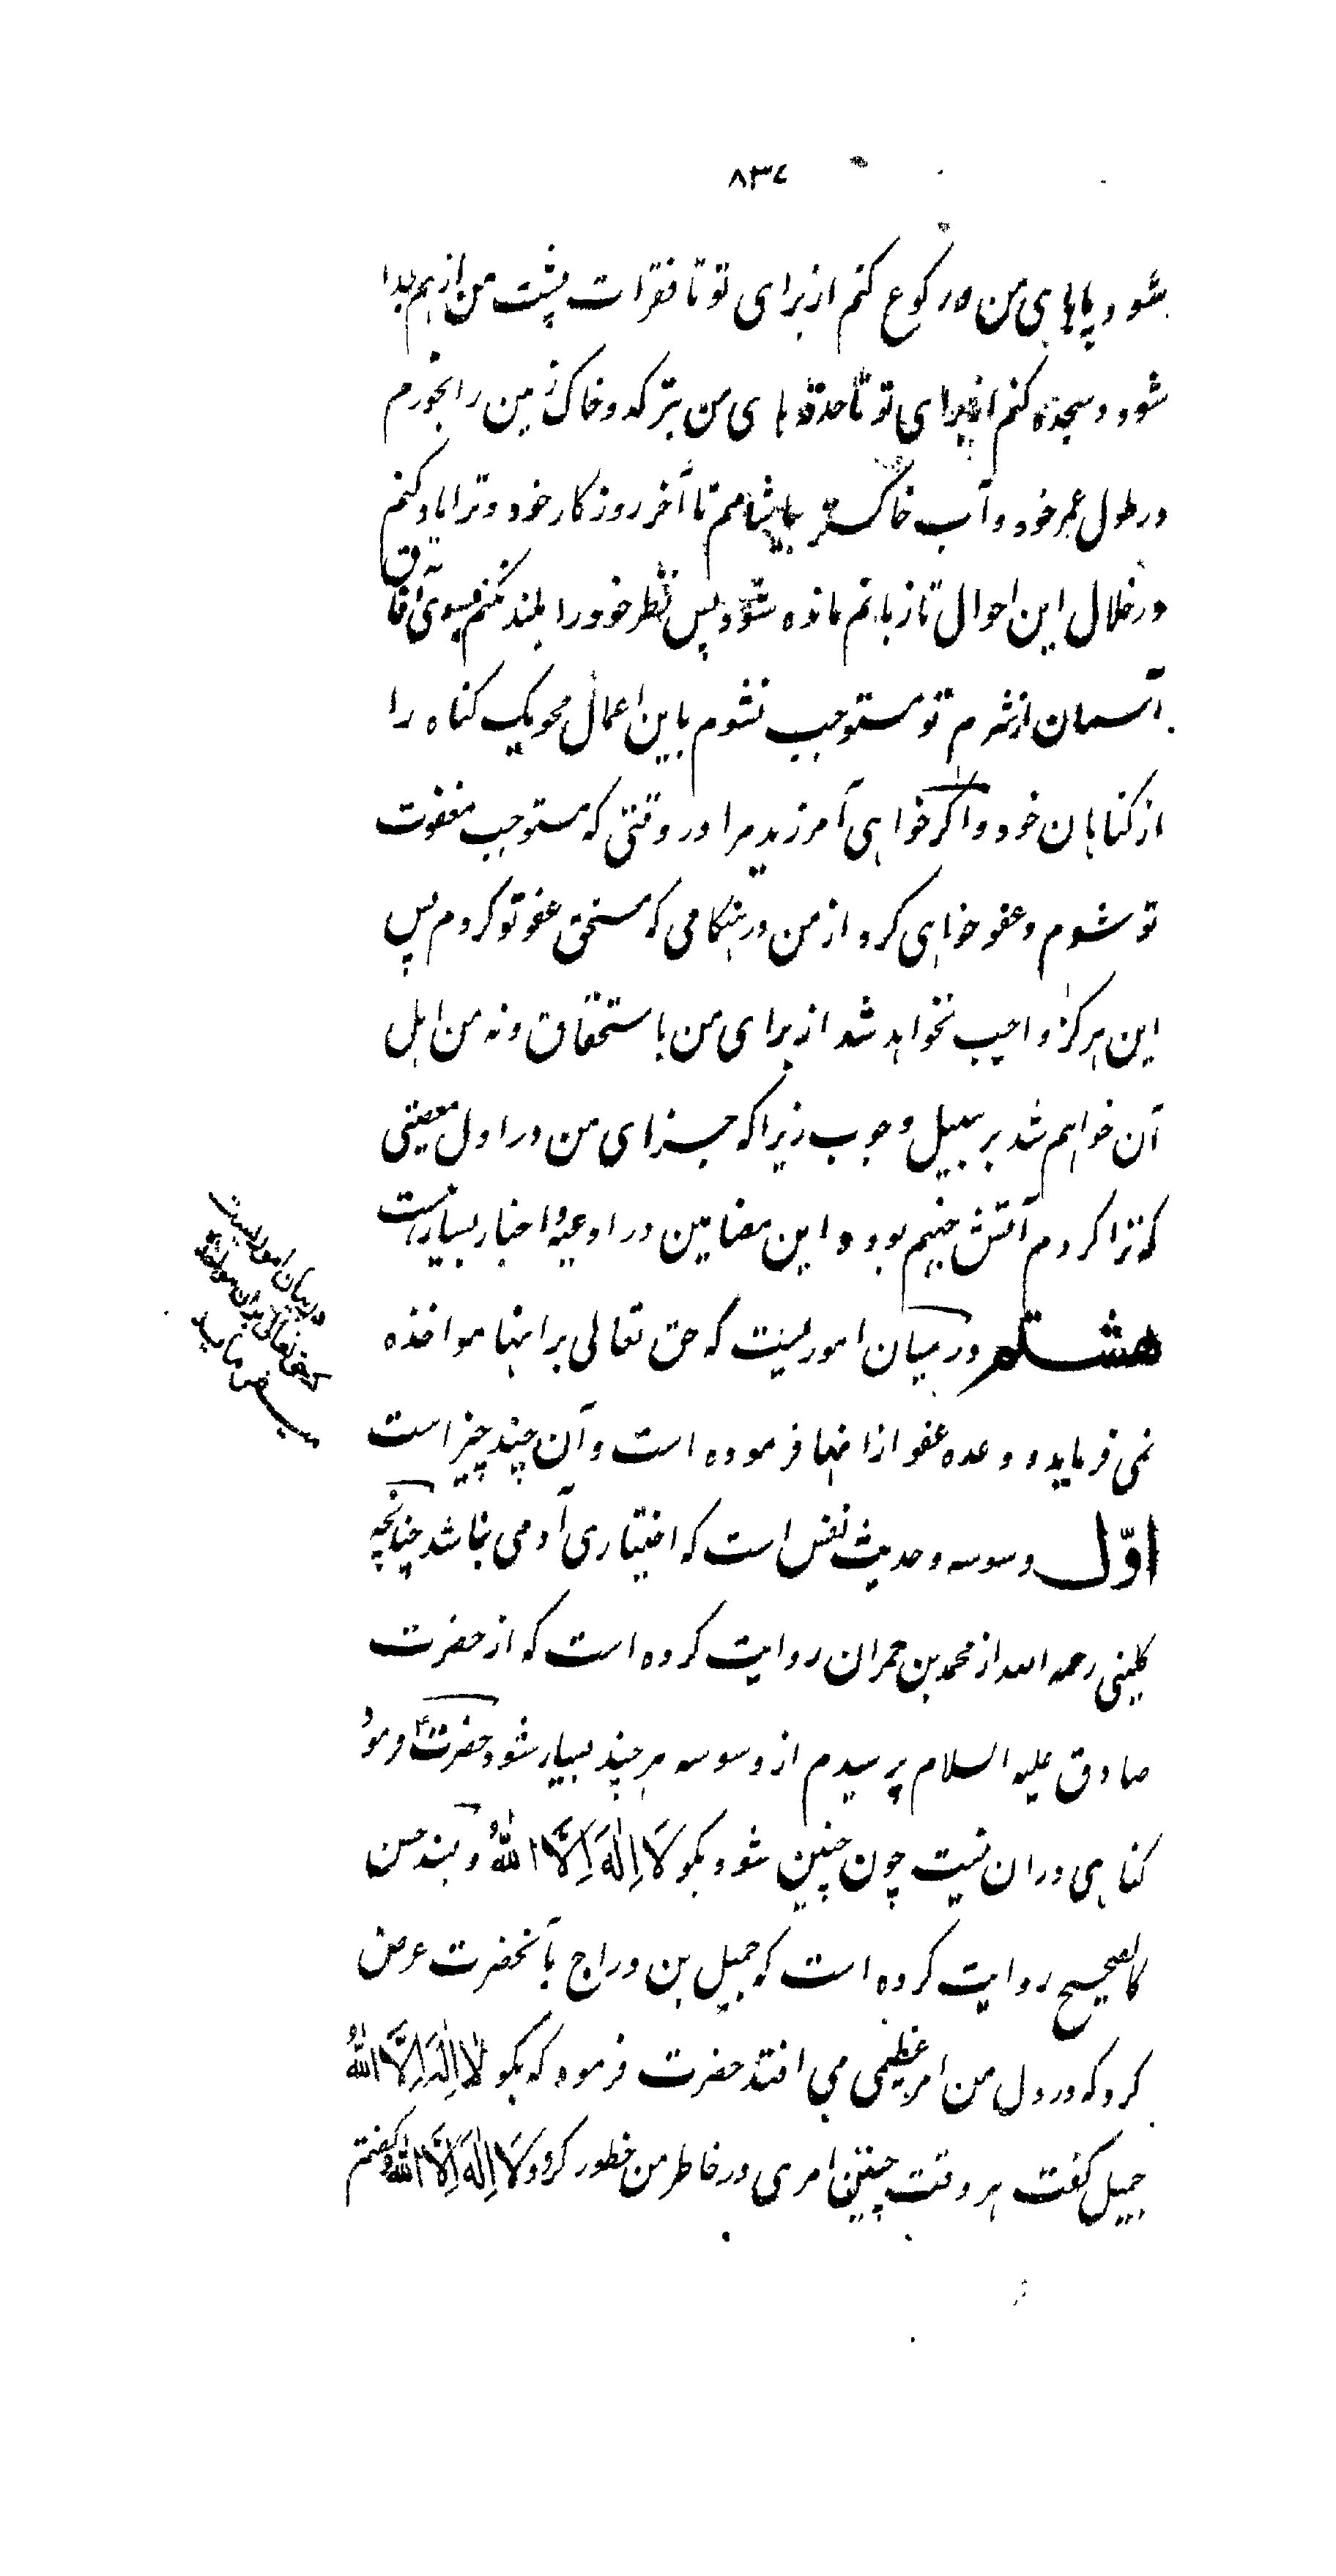 ۸۳۷
شود و پاهای من و رکوع کنم از برای تو تا فقرات پشت من از هم جدا
شود و سجده کنم از برای تو تا حدقه های من بترکد و خاک زمین را بخورم
در طول عمر خود و آب خاکستر بیاشامم تا آخر روزکار خود و ترا یاد کنم
در خلال این احوال تا زبانم مانده شود پس نظر خود را بلند نکنم بسوی آفاق
آسمان از شرم تو مستوجب نشوم باین اعمال محو یک کناه را
از کناهان خود و اکر خواهی آمرزید مرا در وقتی که مستوجب مغفرت
تو شوم و عفو خواهی کرد از من در هنکامی که مستحق عفو تو کردم پس
این هرکز واجب نخواهد شد از برای من باستحقاق و نه من اهل
آن خواهم شد بر سبیل وجوب زیرا که جزای من در اول معصیتی
که ترا کردم آتش جهنم بود و این مضامین در ادعیه و اخبار بسیار است
هشتم در بیان اموریست که حق تعالی بر اینها مواخذه
نمی فرماید و وعده عفو از اینها فرموده است و آن چند چیز است
اوّل وسوسه و حدیث نفس است که اختیاری آدمی نباشد چنانچه
کلینی رحمه الله از محمد بن حمران روایت کرده است که از حضرت
صادق علیه السلام پرسیدم از وسوسه هر چند بسیار شود حضرت فرمود
کناهی در ان نیست چون چنین شود بکو لَا اِلٰهَ اِلَّا اللهُ و بسند حسن
کالصحیح روایت کرده است که جمیل بن دراج بآنحضرت عرض
کرد که در دل من امر عظیمی می افتد حضرت فرمود که بکو لَا اِلٰهَ اِلَّا اللهُ
جمیل کفت هر وقت چنین امری در خاطر من خطور کرد و لَا اِلٰهَ اِلَّا اللهُ کفتم
در بیان اموریست
که حق تعالی بران مواخذه
نمی فرماید